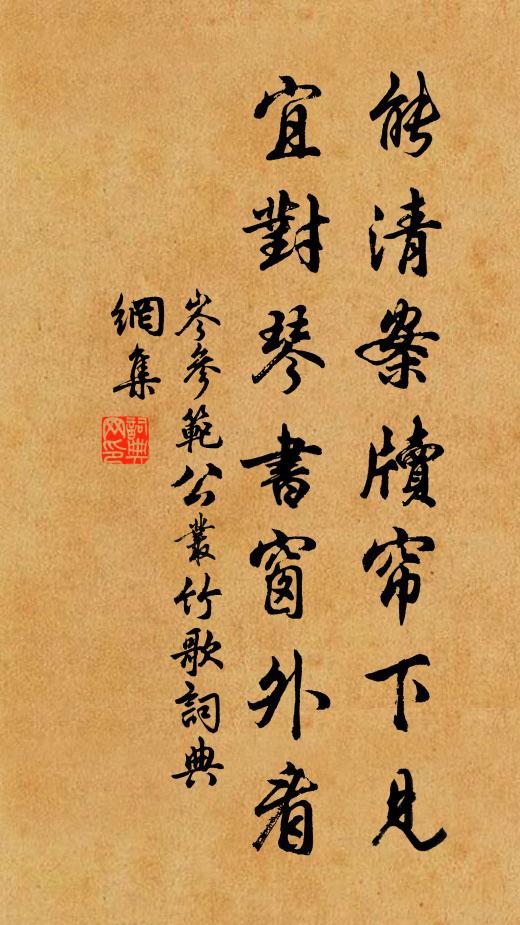 能清案牘帘下見
宜對琴書窗外看
岑參範公叢竹歌詞典
網集
詞典網印